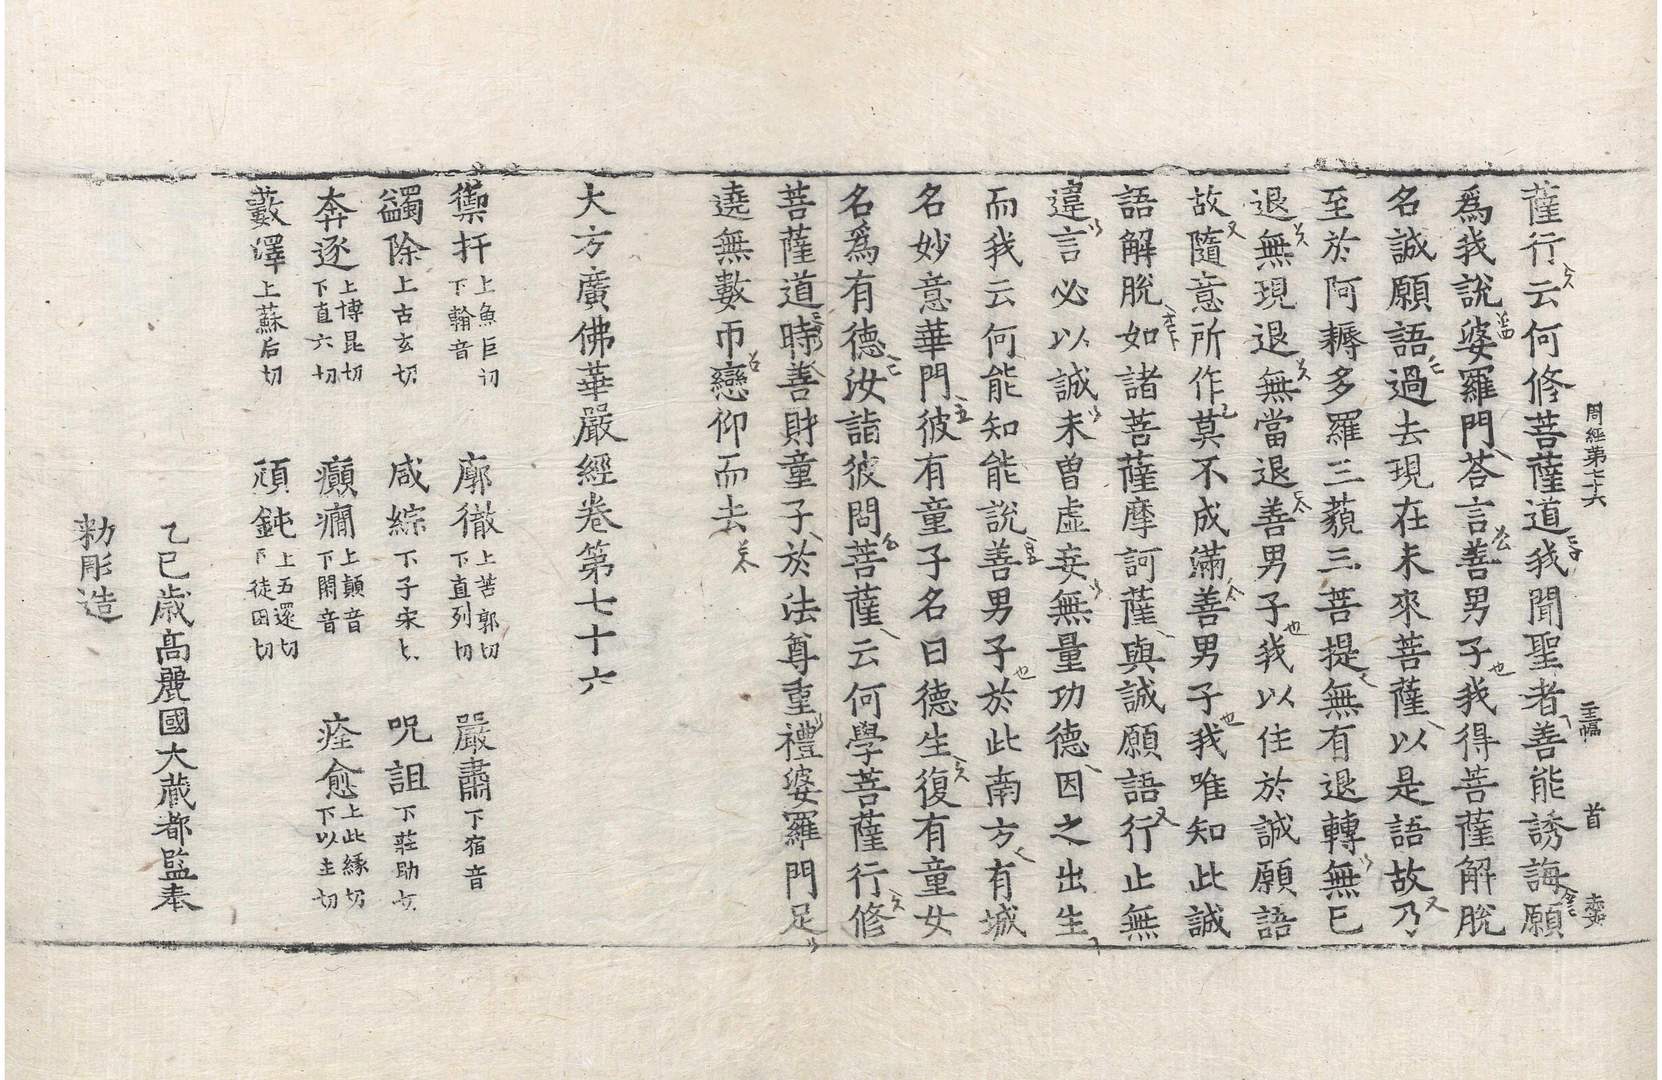 周經第七十六
首
薩行云何修菩薩道我聞聖者善能誘誨願
爲我說婆羅門荅言善男子我得菩薩解脫
名誠願語過去現在未來菩薩以是語故乃
至於阿耨多羅三藐三菩提無有退轉無已
退無現退無當退善男子我以住於誠願語
故隨意所作莫不成滿善男子我唯知此誠
語解脫如諸菩薩摩訶薩與誠願語行止無
違言必以誠未曾虛妄無量功德因之出生
而我云何能知能說善男子於此南方有城
名妙意華門彼有童子名曰德生復有童女
名爲有德汝詣彼問菩薩云何學菩薩行修
菩薩道時善財童子於法尊重禮婆羅門足
遶無數帀戀仰而去
大方廣佛華嚴經卷第七十六
禦扞上魚巨切下翰音 廓徹上苦郭切下直列切 嚴肅下宿音
蠲除上古玄切 咸綜下子宋切 呪詛下莊助切
奔逐上博昆切下直六切 癲癇上顛音下閑音 痊愈上此緣切下以主切
藪澤上蘇后切 頑鈍上五還切下徒困切
乙巳歲高麗國大藏都監奉
勑彫造